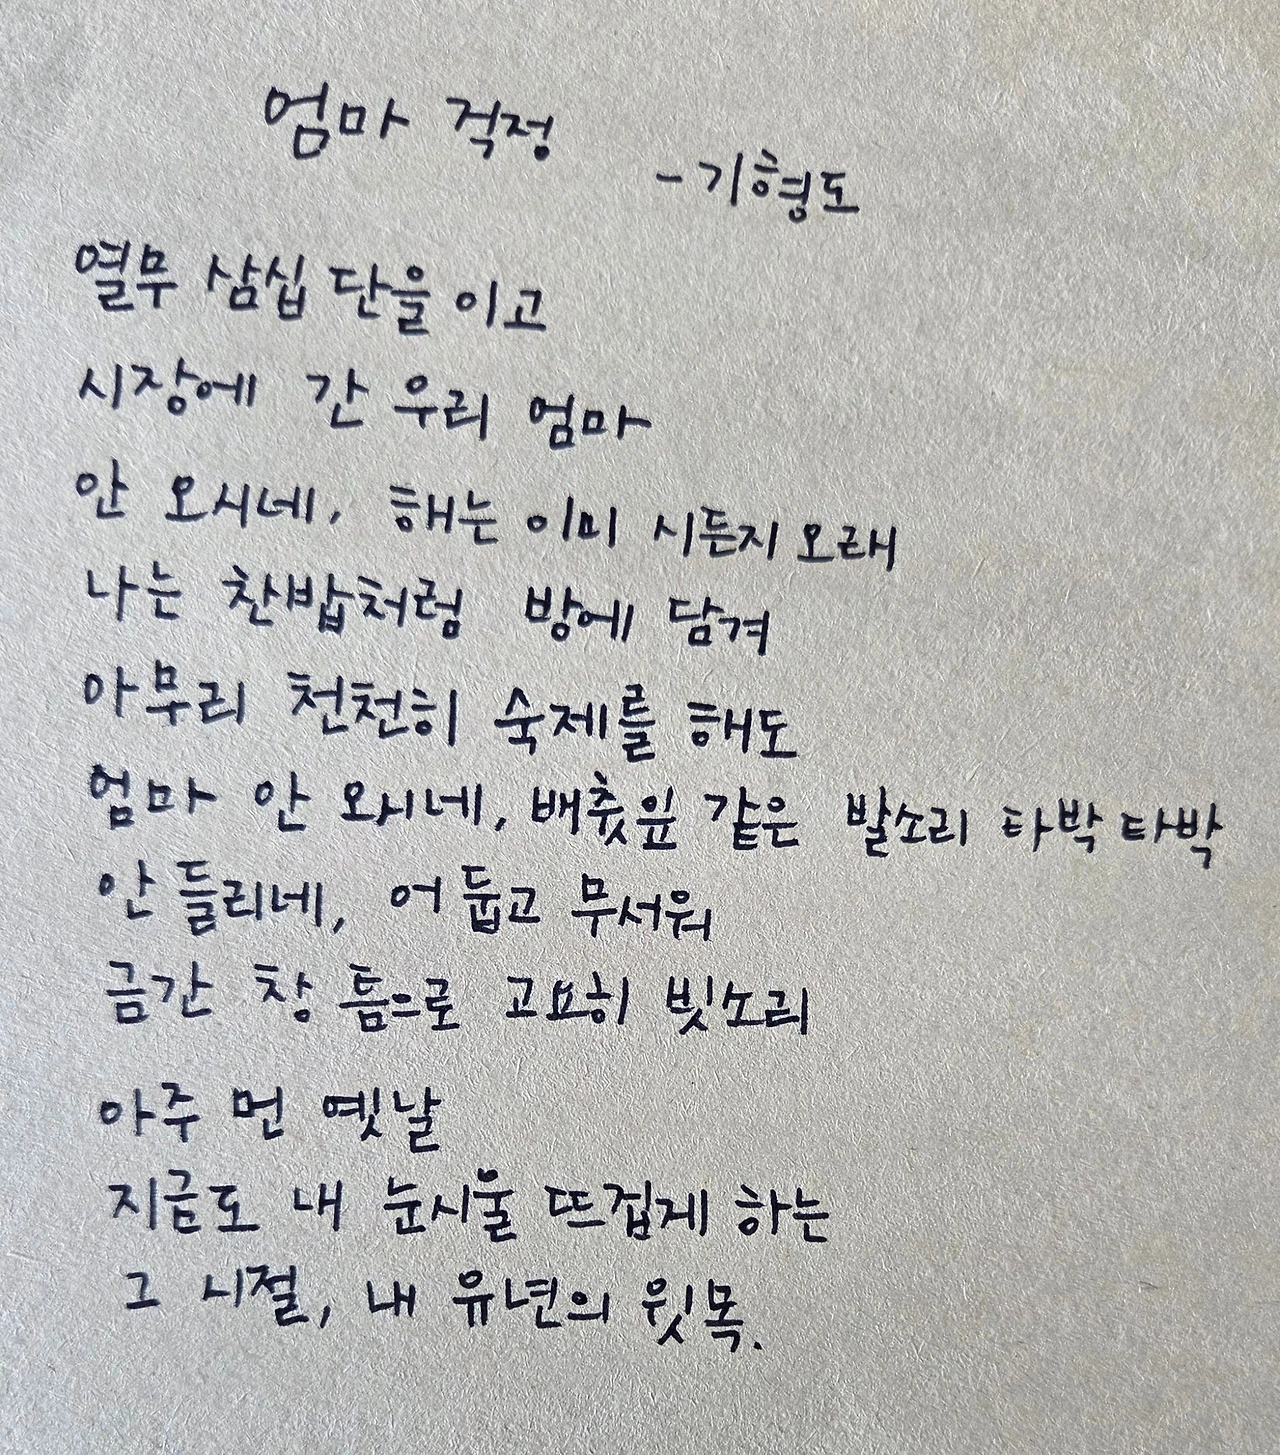 엄마 걱정
-기형도
열무 삼십 단을 이고
시장에 간 우리 엄마
안 오시네, 해는 이미 시든지 오래
나는 찬밥처럼 방에 담겨
아무리 천천히 숙제를 해도
엄마 안 오시네, 배춧잎 같은 발소리 타박 타박
안 들리네, 어둡고 무서워
금간 창 틈으로 고요히 빗소리
아주 먼 옛날
지금도 내 눈시울 뜨겁게 하는
그 시절, 내 유년의 윗목.